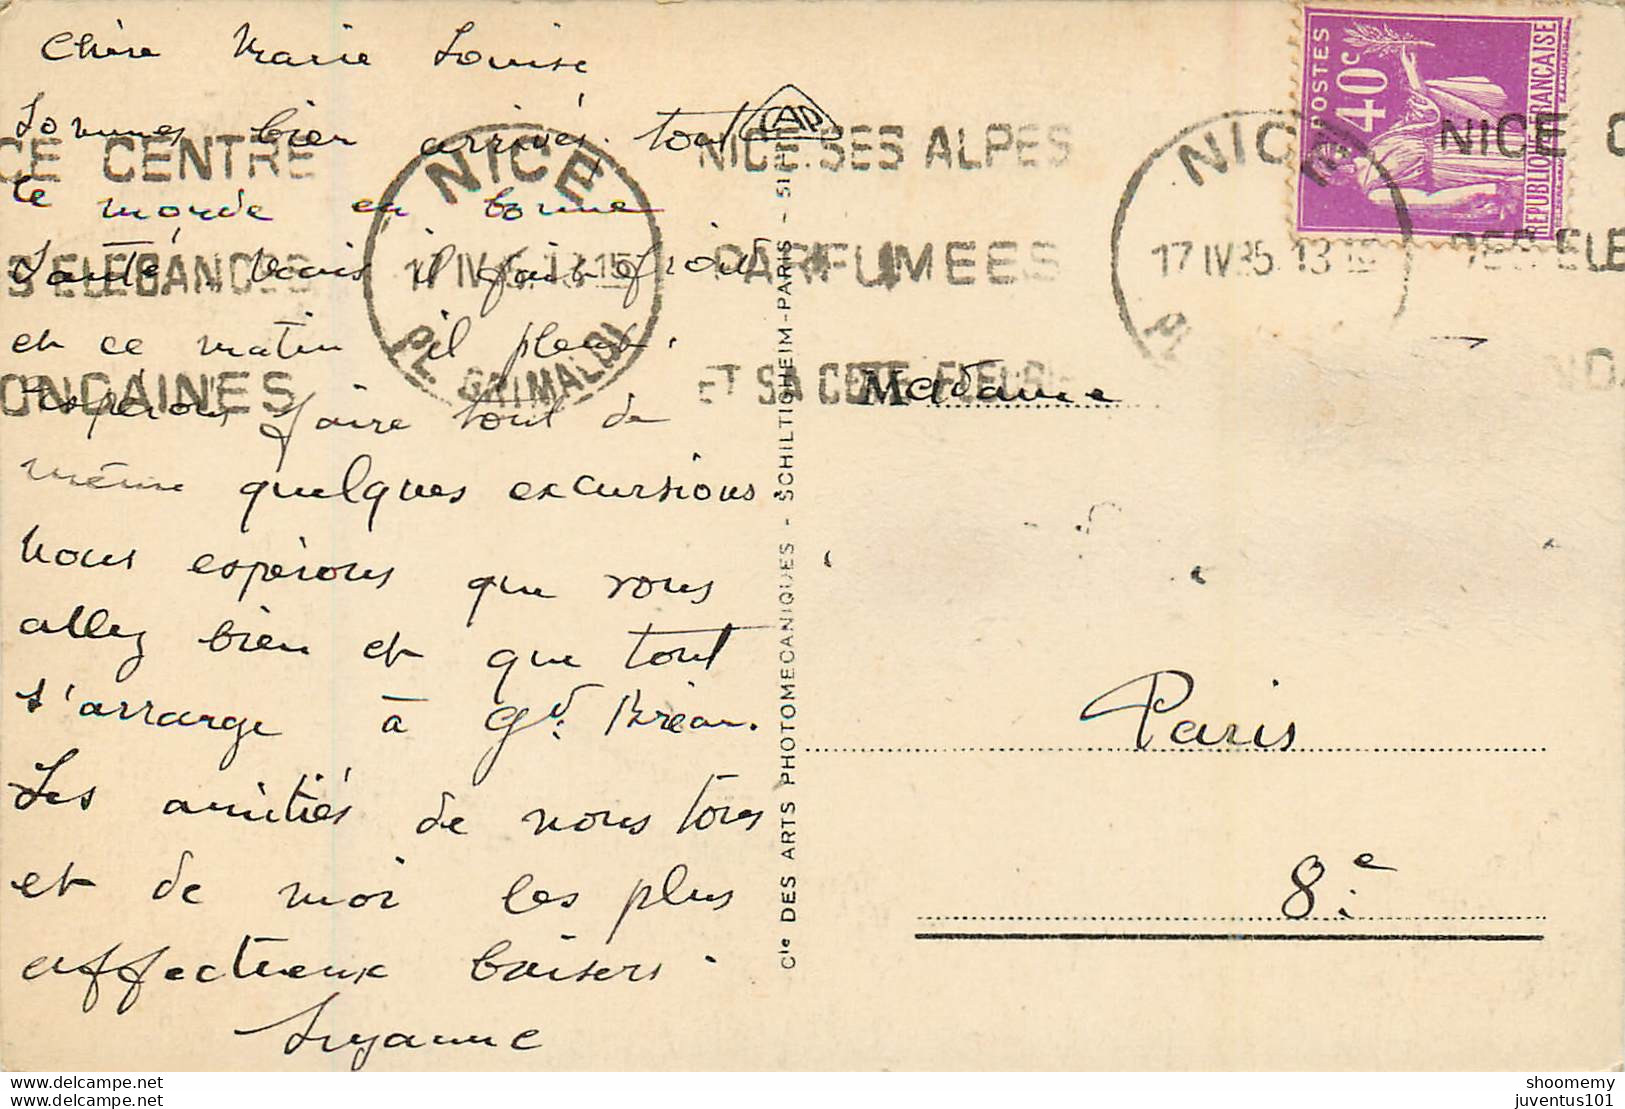 Chère Marie Louise
Sommes bien arrivés tout
le monde en bonne
Santé, mais il fait froid
et ce matin il pleut.
Espérons faire tout de
même quelques excursions.
Nous espérons que vous
allez bien et que tout
s'arrange à Gd. Bréau.
Les amitiés de nous tous
et de moi les plus
affectueux baisers.
Suzanne
CE CENTRE
S ELEGANCES
ONDAINES
NICE
17 IV 35 13 15
PL. GRIMALDI
NICE SES ALPES
PARFUMEES
ET SA COTE FLEURIE
NICE
17 IV 35 13 15
PL
NICE C
DES ELE
NDA
POSTES
40c
REPUBLIQUE FRANÇAISE
CAP
Cie DES ARTS PHOTOMECANIQUES - SCHILTIGHEIM-PARIS - 51
Madame
Paris
8e
www.delcampe.net
www.delcampe.net
shoomemy
juventus101